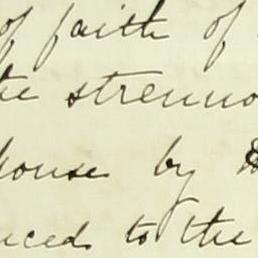 of faith of
the strenuo
house by
uced to the